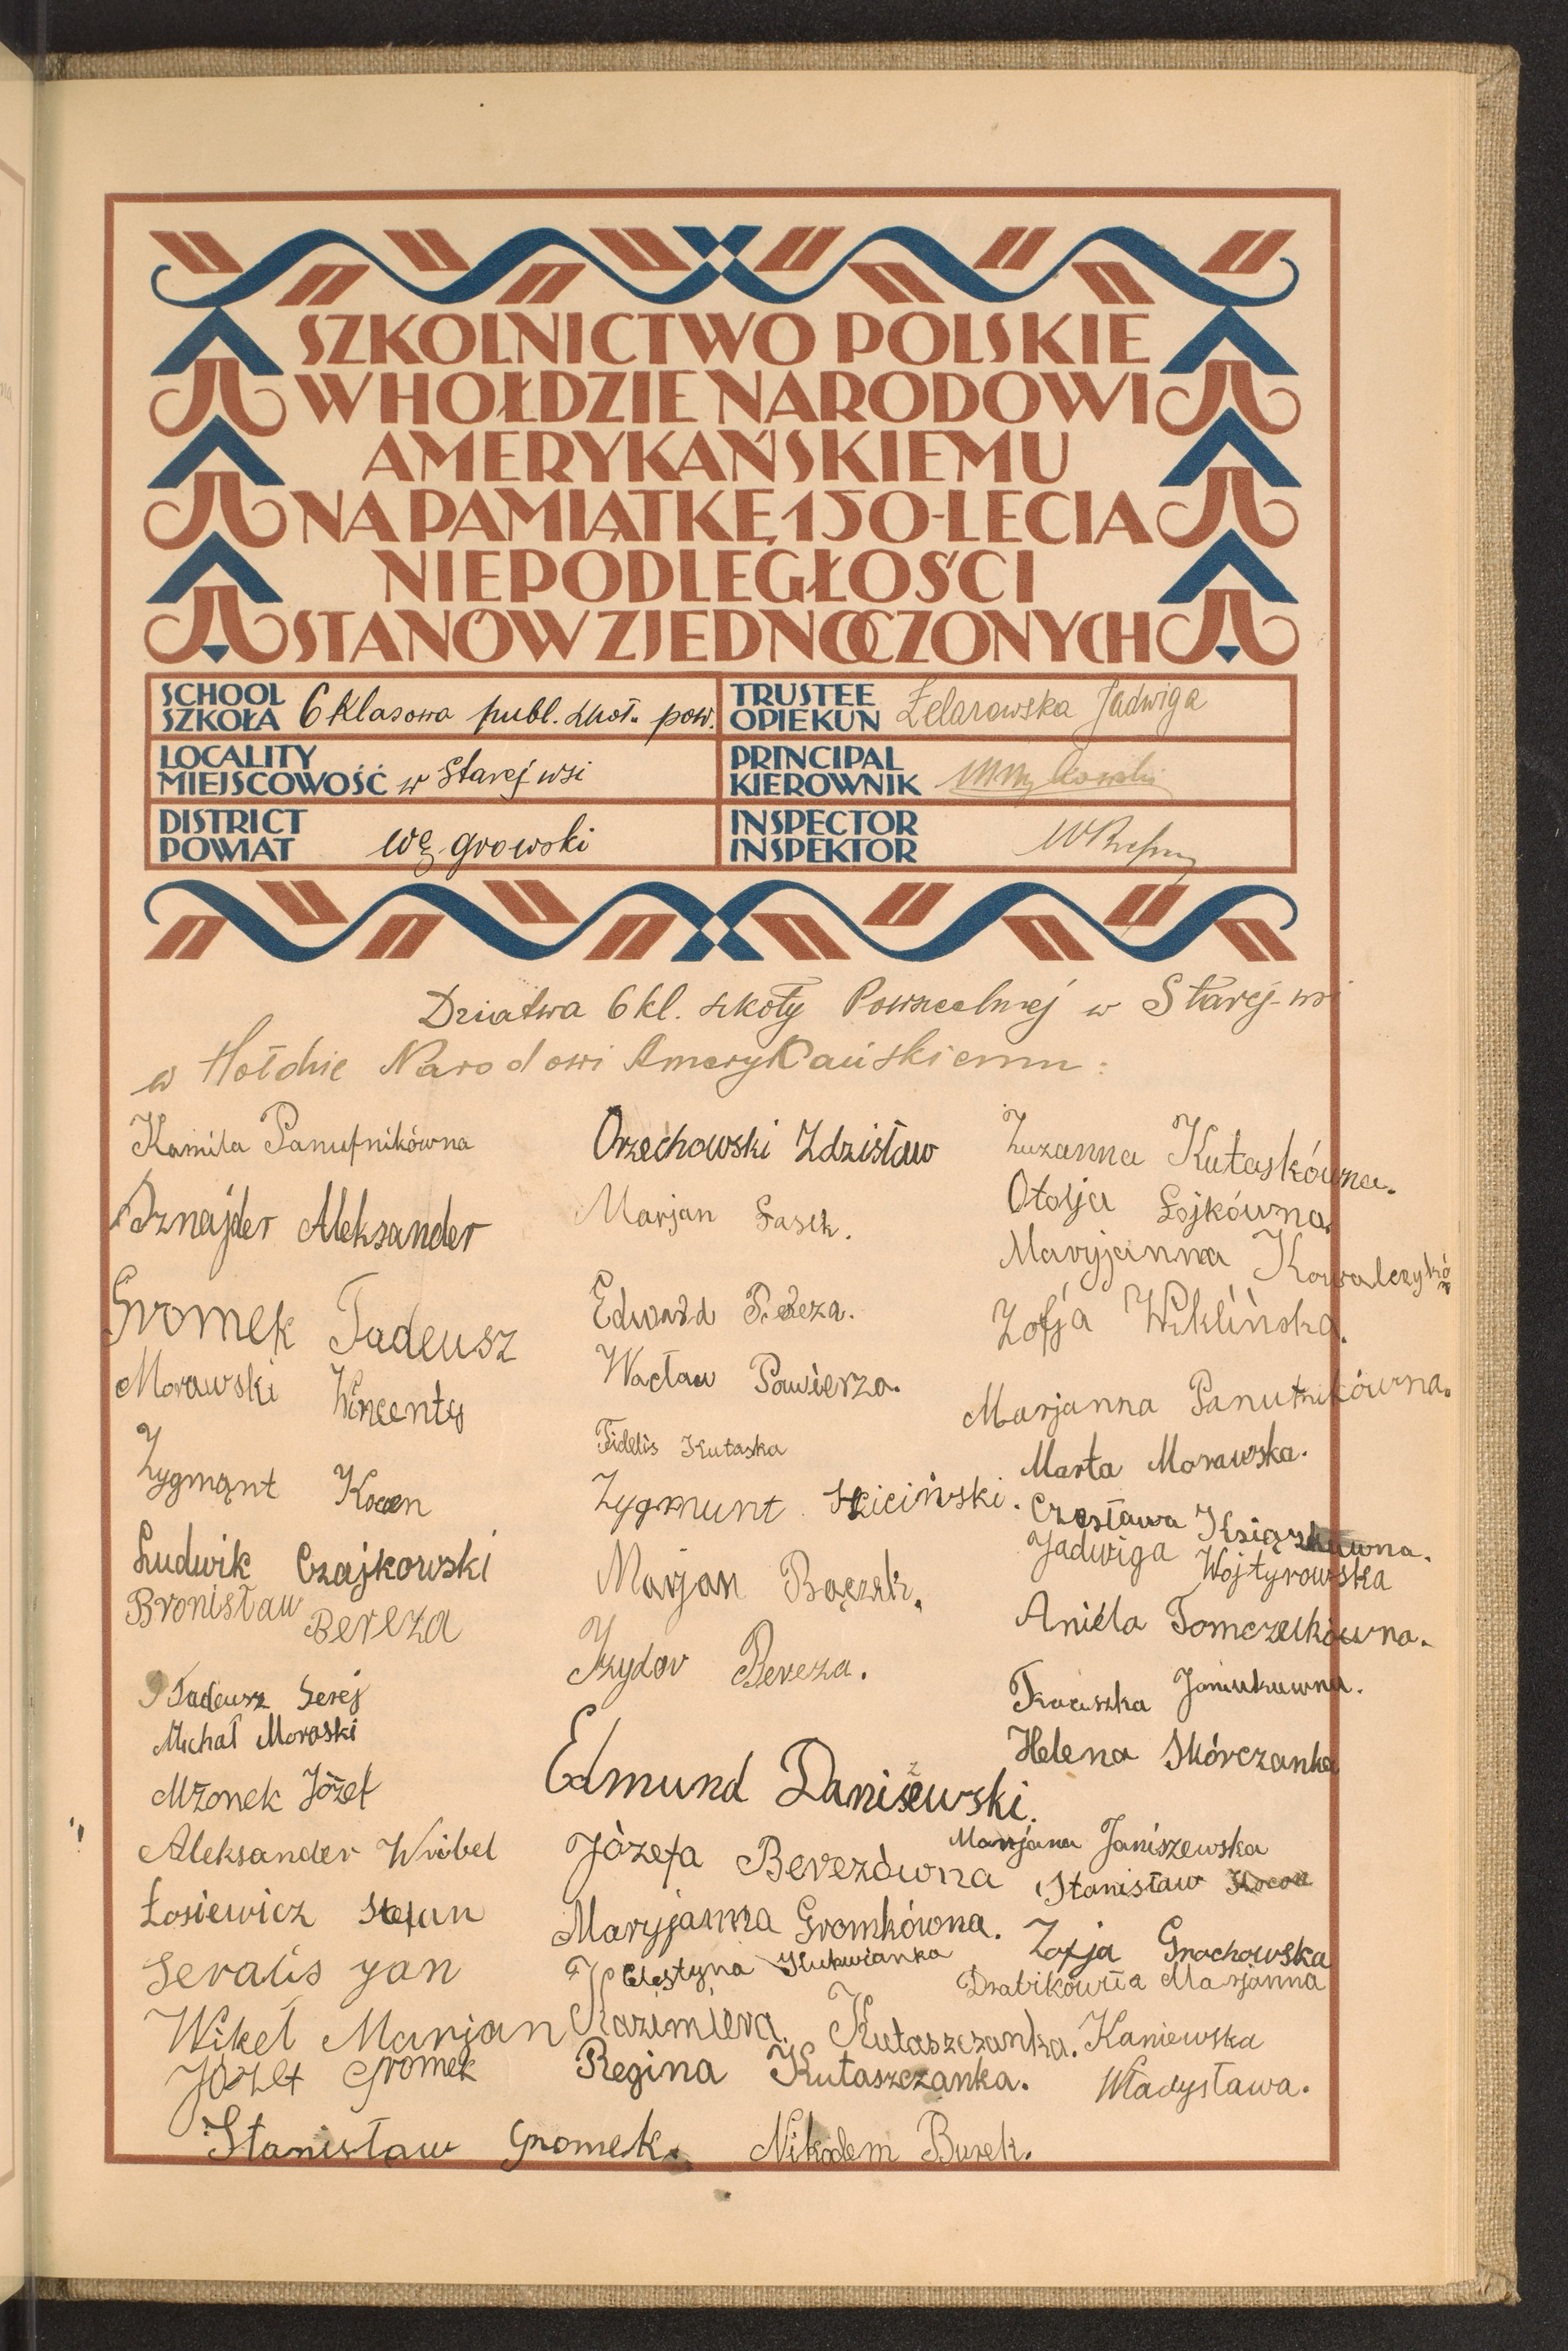 SZKOLNICTWO POLSKIE
W HOŁDZIE NARODOWI
AMERYKAŃSKIEMU
NA PAMIĄTKĘ 150-LECIA
NIEPODLEGŁOŚCI
STANÓW ZJEDNOCZONYCH
SCHOOL
SZKOŁA 6 klasowa publ. szkoł. pow.
TRUSTEE
OPIEKUN Żelarowska Jadwiga
LOCALITY
MIEJSCOWOŚĆ w Starej wsi
PRINCIPAL
KIEROWNIK
DISTRICT
POWIAT Węgrowski
INSPECTOR
INSPEKTOR
Dziatwa 6 kl. szkoły Powszechnej w Starej-wsi
w Hołdzie Narodowi Amerykańskiemu:
Kamila Panufnikówna
Sznajder Aleksander
Gromek Tadeusz
Morawski Wincenty
Zygmont Kocon
Ludwik Czajkowski
Bronisław Bereza
Tadeusz Serej
Michał Moroski
Mżonek Józef
Aleksander Wróbel
Łosiewicz Stefan
Serafis Jan
Wikeł Marjan
Józef Gromek
Stanisław Gromek.
Orzechowski Zdzisław
Marjan Sasek.
Edward Bereza.
Wacław Pawierza.
Fidelis Kutaska
Zygmunt Sziciński.
Marjan Bączek.
Izydor Bereza.
Edmund Daniszewski.
Józefa Berezówna
Maryjanna Gromkówna.
Celestyna Kukwianka
Kazimiera Kutaszczanka.
Regina Kutaszczanka.
Nikodem Burek.
Zuzanna Kutaskówna.
Otolja Łojkówna.
Maryjanna Kowalczykó
Zofja Wiklińska.
Marjanna Panufnikówna.
Marta Morawska.
Czesława Książkówna.
Jadwiga Wojtyrowska
Aniela Tomczukówna.
Fraciszka Janiukuwna.
Helena Skórczanka
Marjana Janiszewska
Stanisław Kocon
Zofja Grochowska
Drabikówna Marjanna
Kaniewska
Władysława.